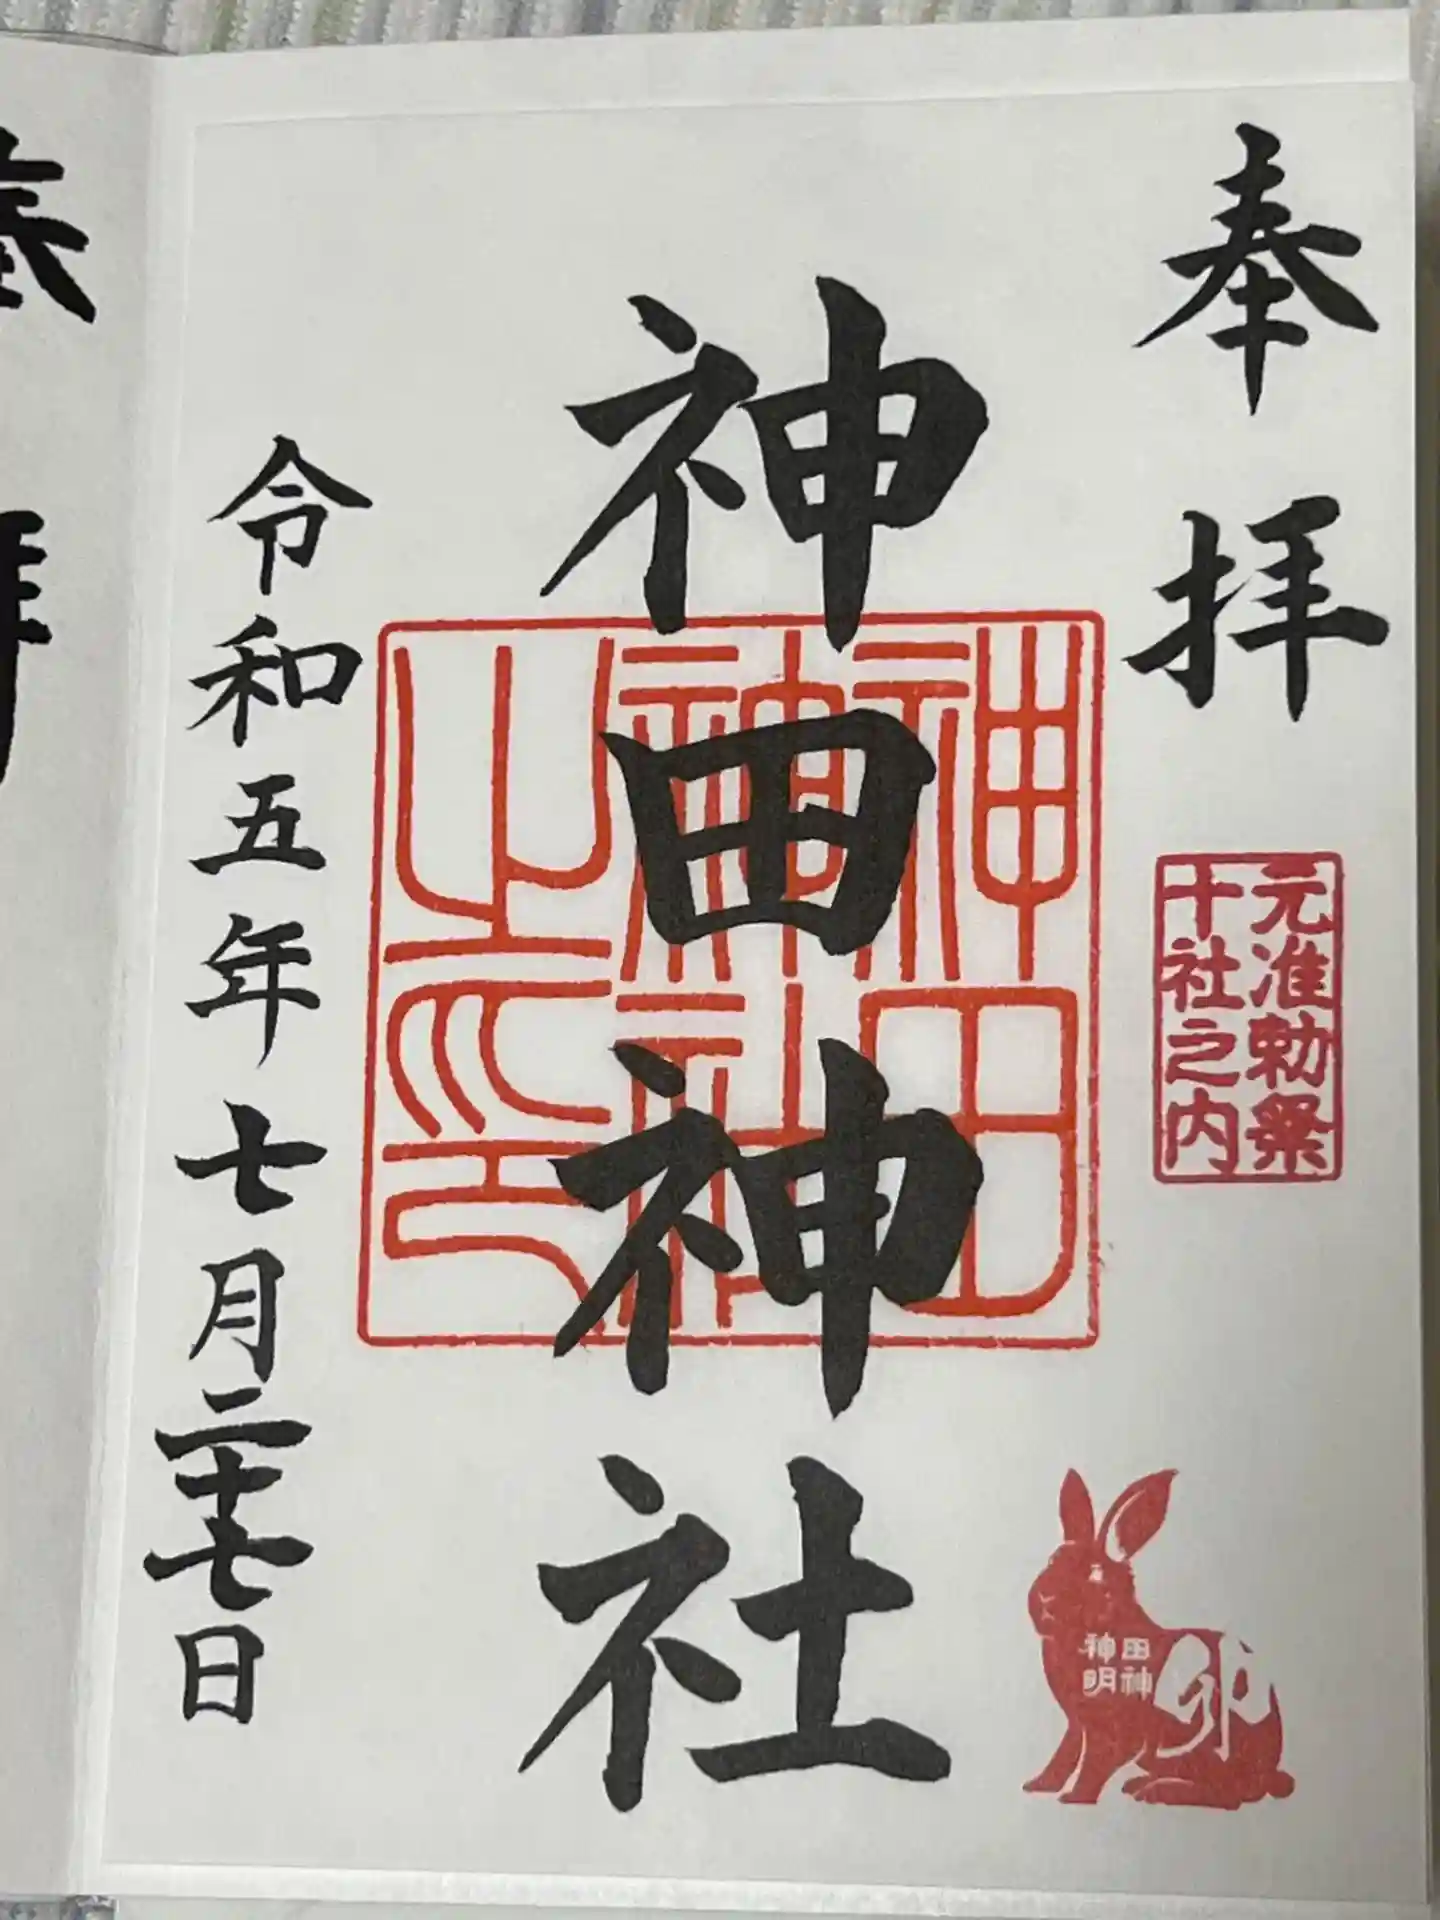 奉拝
元准勅祭
十社之内
神田神社
神田
神社
之印
田神
神明
卯
令和五年七月二十七日
奉拝